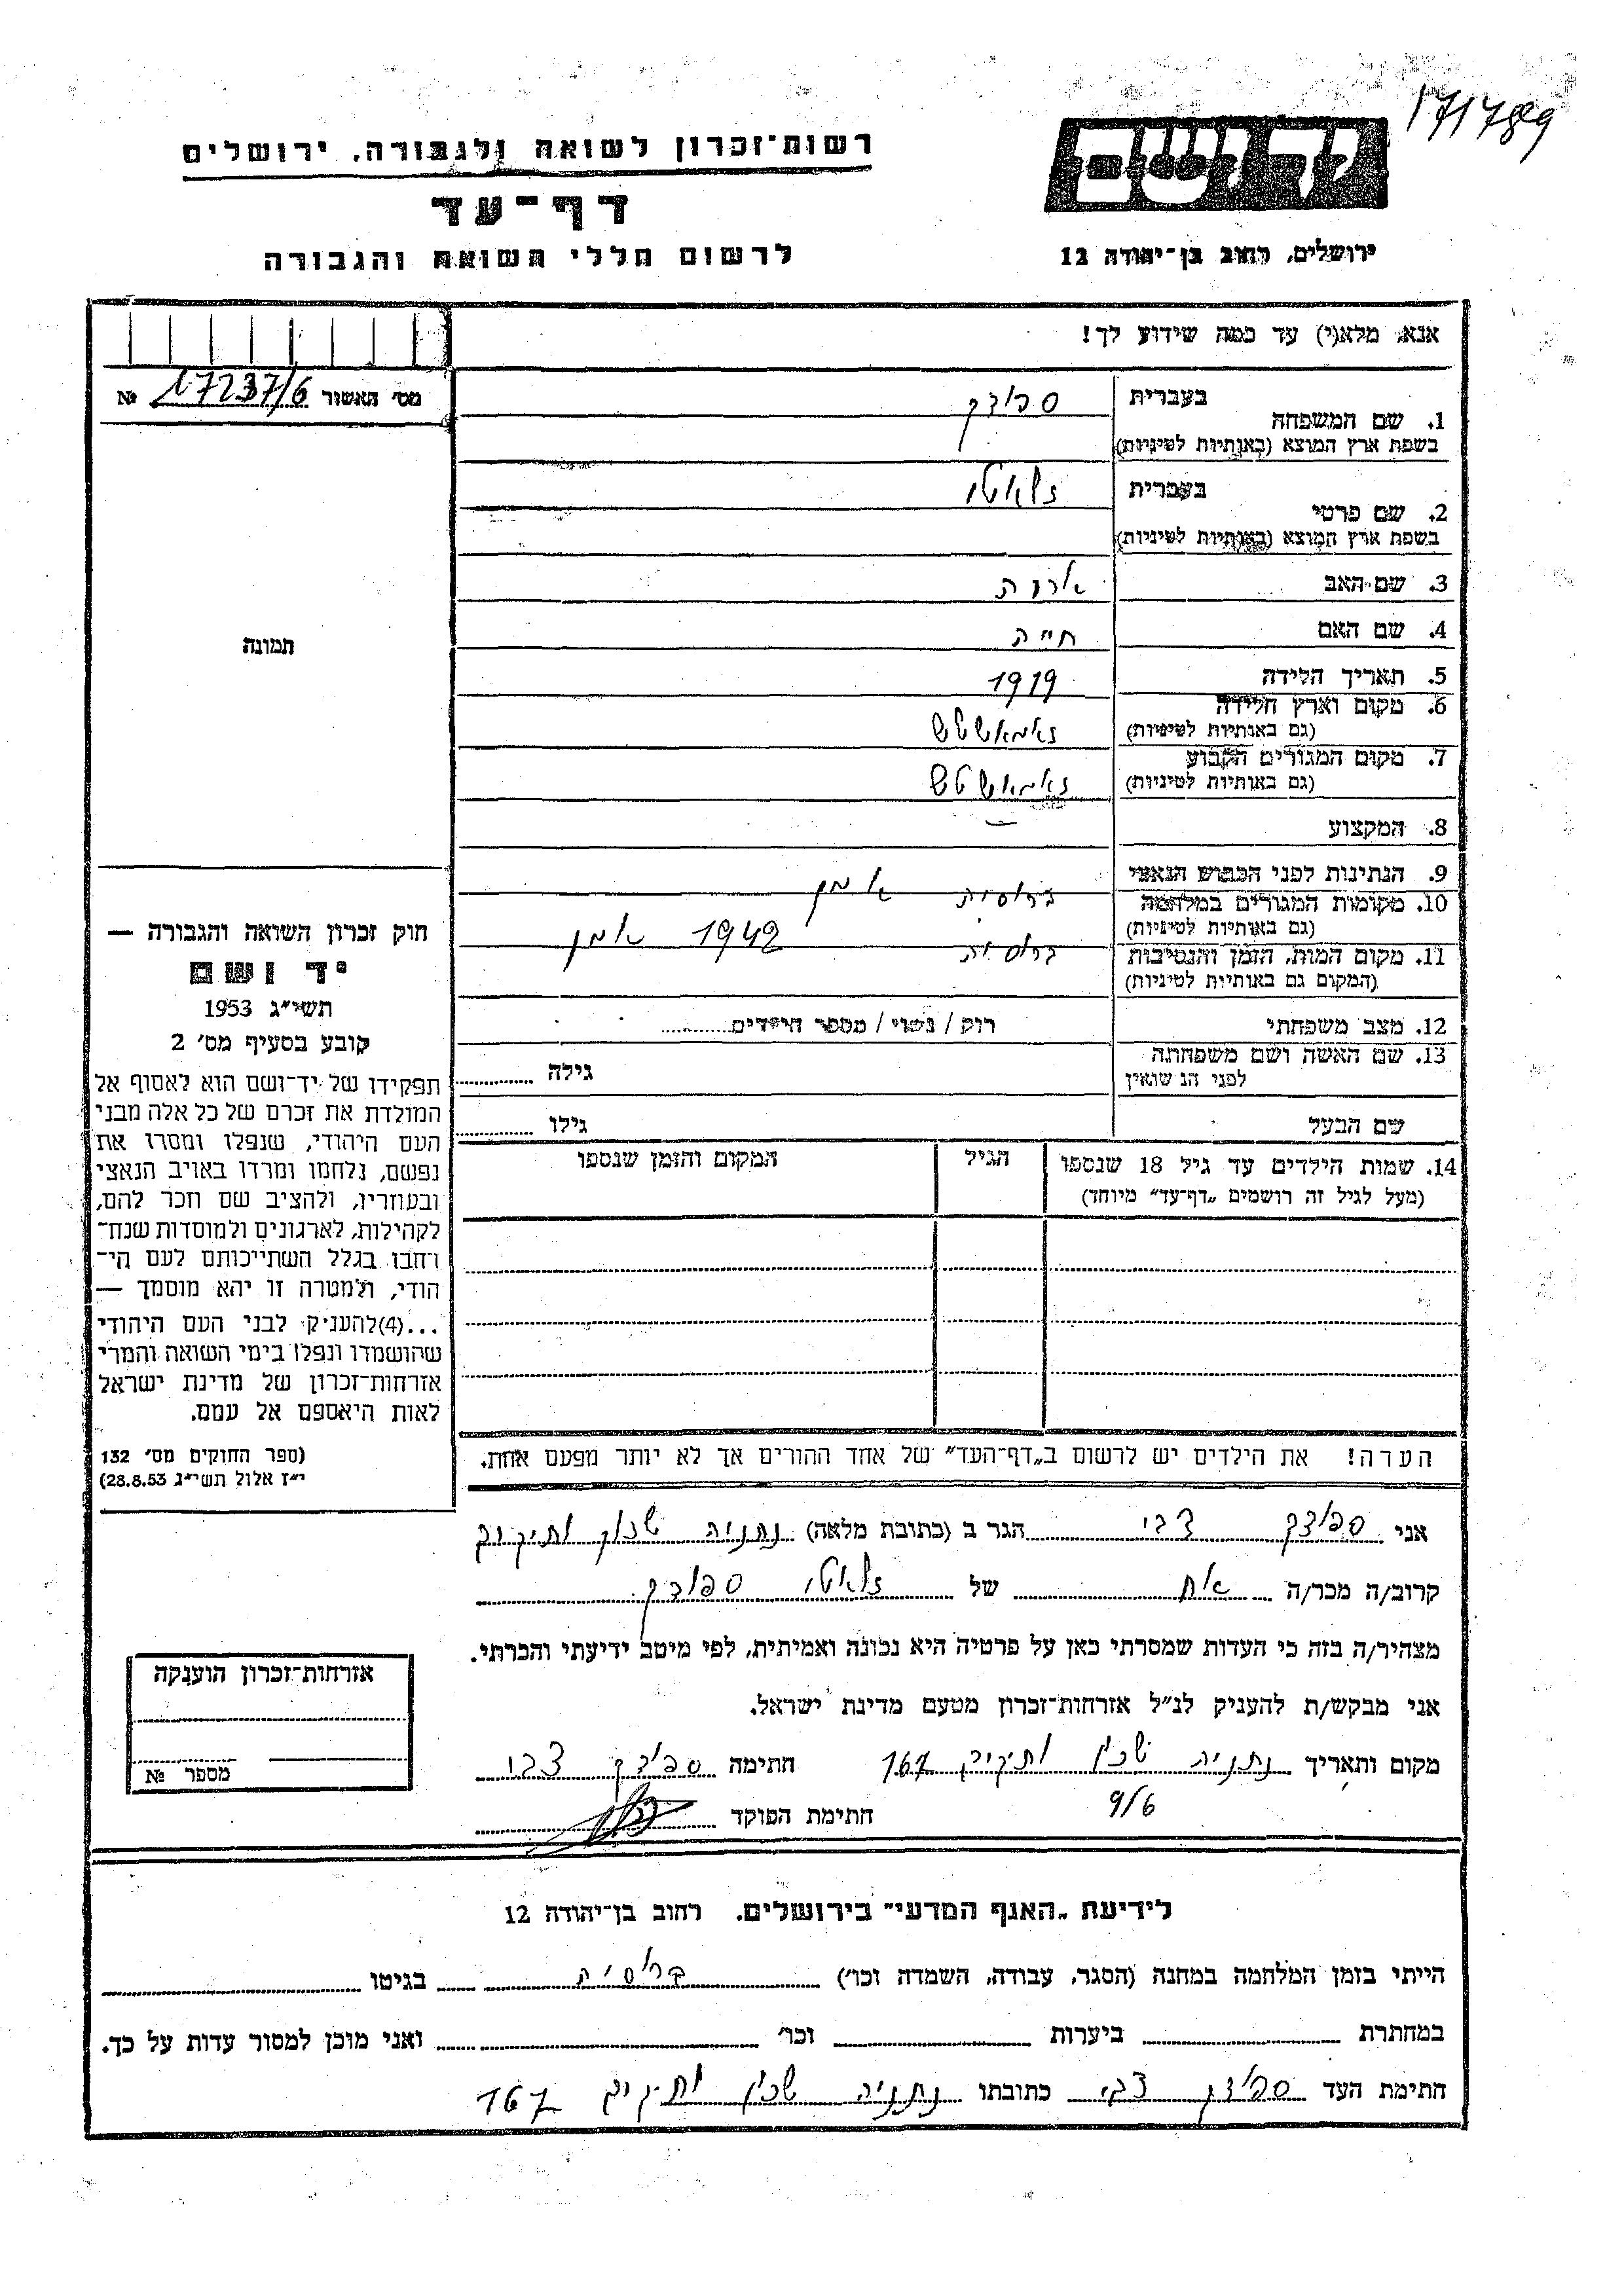 171789
רשות־זכרון לשואה ולגבורה, ירושלים
יד ושם
דף־עד
לרשום חללי השואה והגבורה
ירושלים, רחוב בן־יהודה 12
אנא, מלא(י) עד כמה שידוע לך!
מס׳ האשור № 17237/6
1. שם המשפחה
בעברית
בשפת ארץ המוצא (באותיות לטיניות)
2. שם פרטי
בעברית זלאטע
בשפת ארץ המוצא (באותיות לטיניות)
3. שם האב
4. שם האם חייה
5. תאריך הלידה 1919
6. מקום וארץ הלידה
(גם באותיות לטיניות)
7. מקום המגורים הקבוע
(גם באותיות לטיניות)
8. המקצוע —
9. הנתינות לפני הכבוש הנאצי
10. מקומות המגורים במלחמה
(גם באותיות לטיניות)
11. מקום המות, הזמן והנסיבות 1942
(המקום גם באותיות לטיניות)
12. מצב משפחתי רוק / נשוי / מספר הילדים
13. שם האשה ושם משפחתה
לפני הנשואין
גילה
שם הבעל
גילו
14. שמות הילדים עד גיל 18 שנספו הגיל המקום והזמן שנספו
(מעל לגיל זה רושמים „דף־עד״ מיוחד)
הערה! את הילדים יש לרשום ב„דף־העד״ של אחד ההורים אך לא יותר מפעם אחת.
תמונה
חוק זכרון השואה והגבורה —
יד ושם
תשי״ג 1953
קובע בסעיף מס׳ 2
תפקידו של יד־ושם הוא לאסוף אל
המולדת את זכרם של כל אלה מבני
העם היהודי, שנפלו ומסרו את
נפשם, נלחמו ומרדו באויב הנאצי
ובעוזריו, ולהציב שם וזכר להם,
לקהילות, לארגונים ולמוסדות שנח־
רבו בגלל השתייכותם לעם הי־
הודי, ולמטרה זו יהא מוסמך —
...(4)להעניק לבני העם היהודי
שהושמדו ונפלו בימי השואה והמרי
אזרחות־זכרון של מדינת ישראל
לאות היאספם אל עמם.
(ספר החוקים מס׳ 132
י״ז אלול תשי״ג 28.8.53)
אני צבי הגר ב (כתובת מלאה) נתניה שכון ותיקים
קרוב/ה מכר/ה אח של זלאטע
מצהיר/ה בזה כי העדות שמסרתי כאן על פרטיה היא נכונה ואמיתית, לפי מיטב ידיעתי והכרתי.
אני מבקש/ת להעניק לנ״ל אזרחות־זכרון מטעם מדינת ישראל.
מקום ותאריך נתניה שכון ותיקים 167 חתימה צבי
9/6
חתימת הפוקד
אזרחות־זכרון הוענקה
מספר №
לידיעת „האגף המדעי״ בירושלים, רחוב בן־יהודה 12
הייתי בזמן המלחמה במחנה (הסגר, עבודה, השמדה וכו׳) בגיטו
במחתרת ביערות וכו׳ ואני מוכן למסור עדות על כך.
חתימת העד צבי כתובתו נתניה שכון ותיקים 167